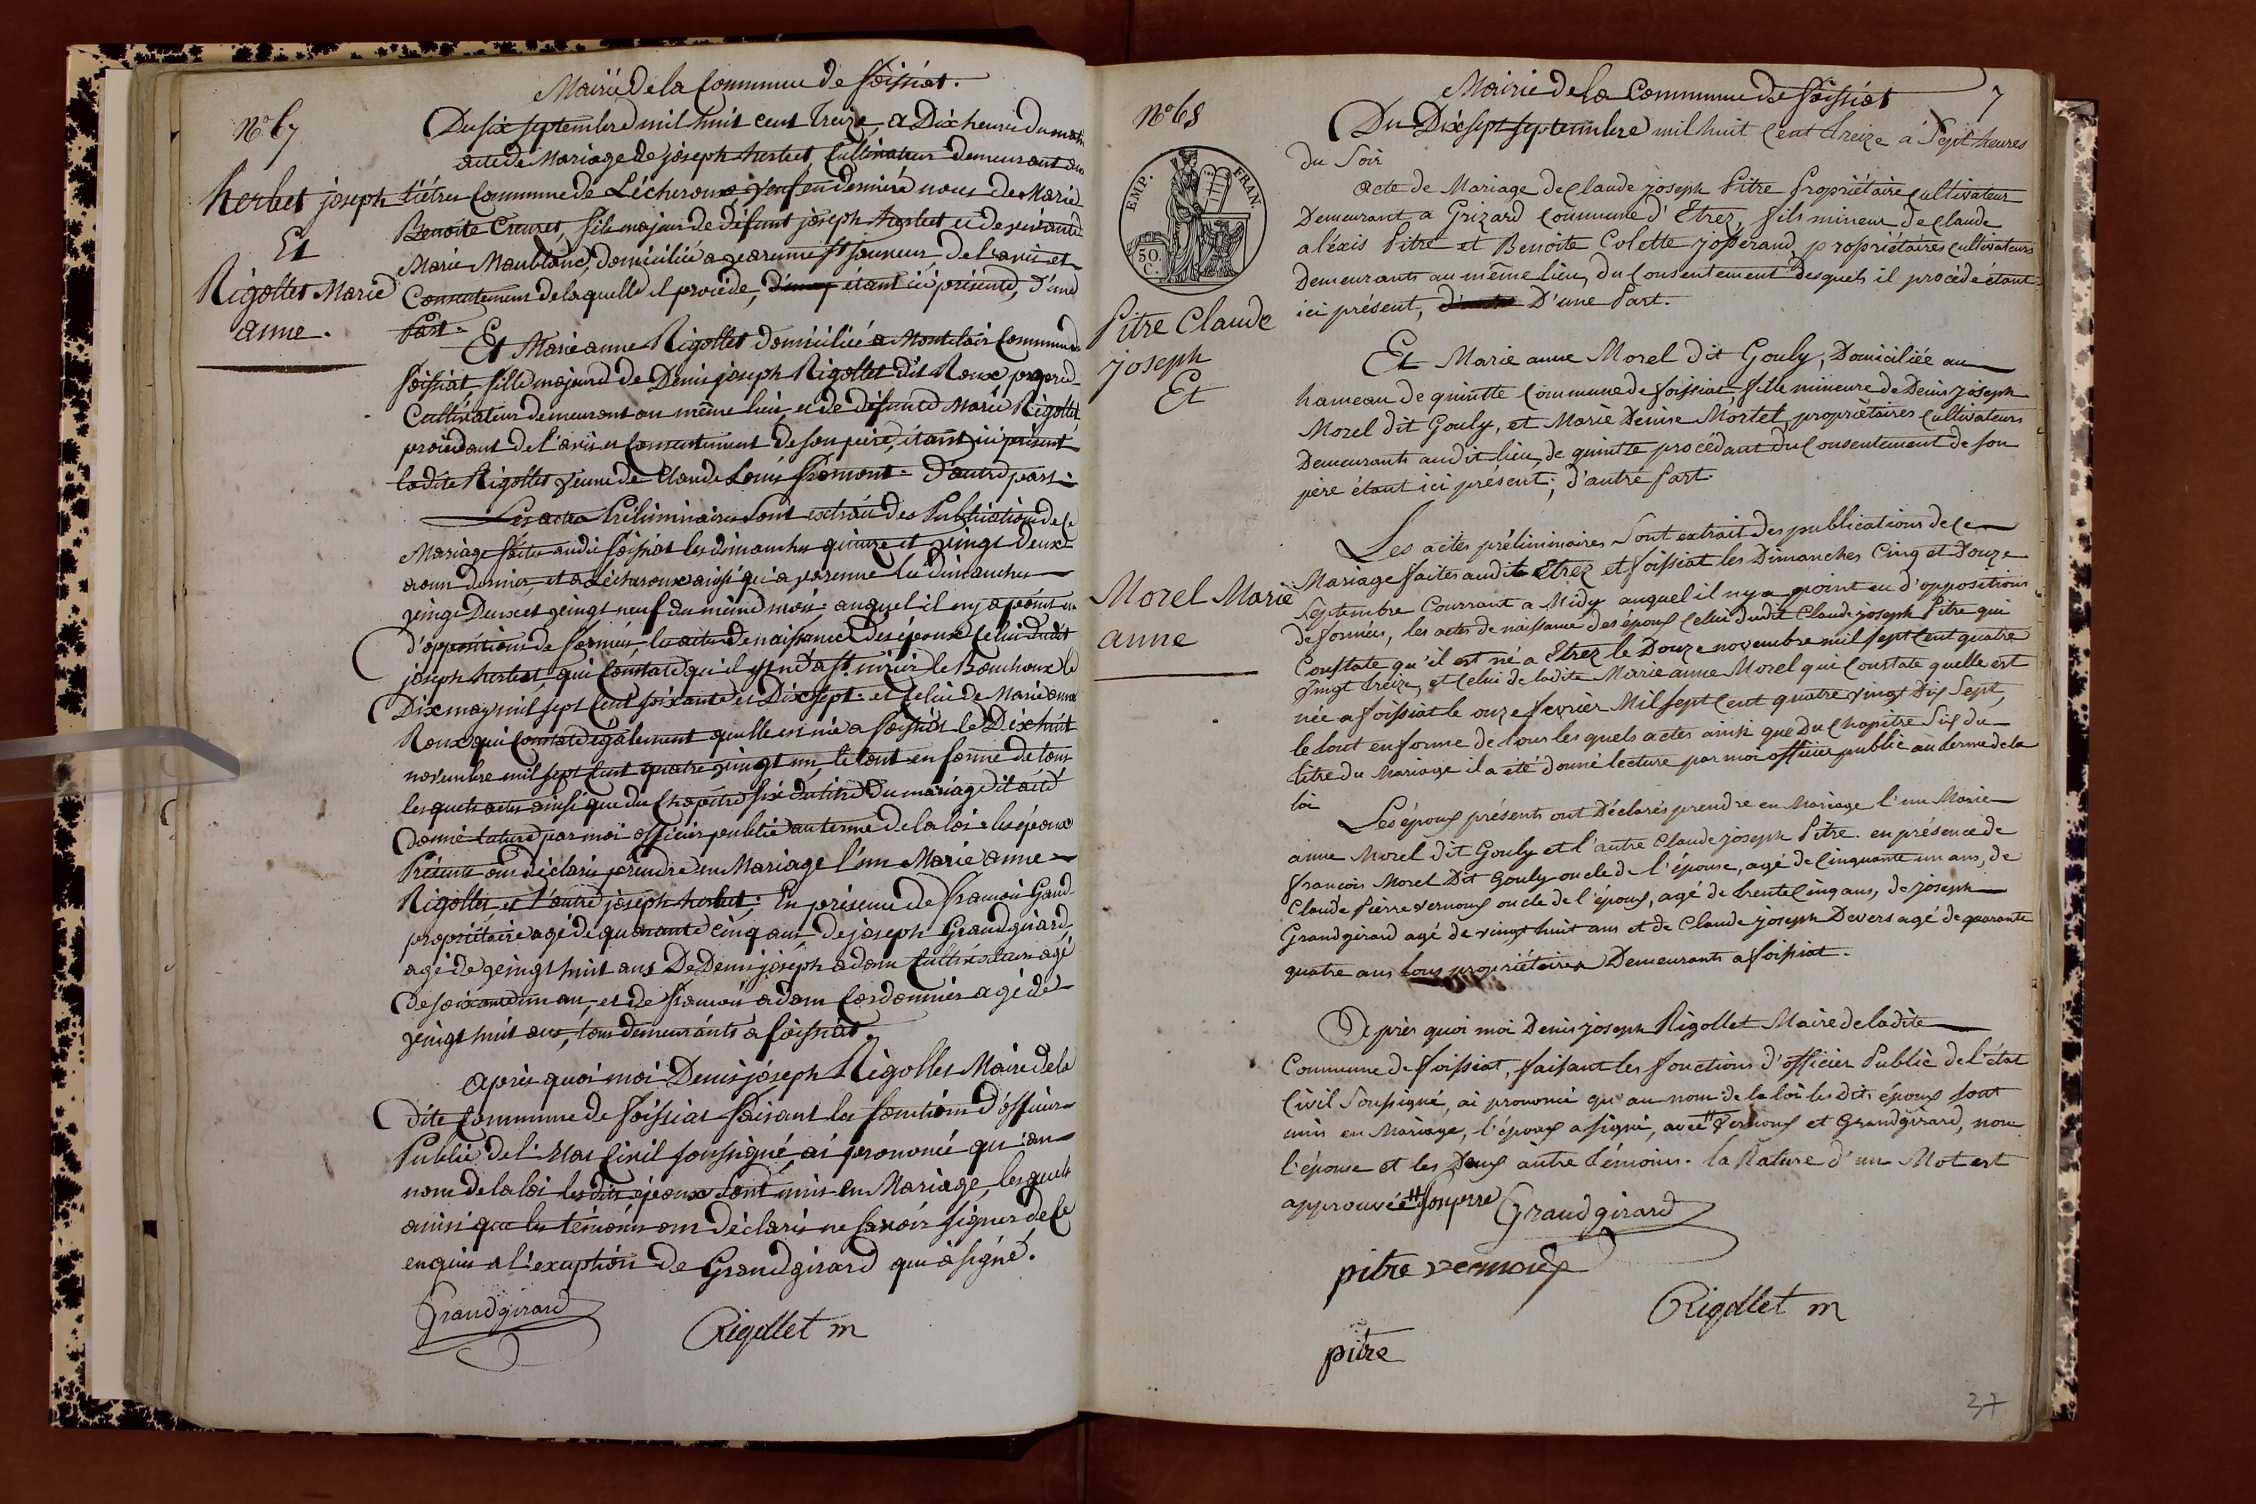 Mairie De la Commune de foissiat.
N.o 67
Du six septembre mil huit cent treize, a Dix heures du matin
acte de Mariage de joseph herbet, Cultivateur demeurant au
herbet joseph
Et
Rigollet Marie
anne.
Commune de Lécheroux, veuf en dernière noces de Marie
Benoite Cruzet, fils majeur de défunt joseph herbet et de vivante
Marie Maublanc, domiciliée a de l'avis et
Consentement de laquelle il procède, étant ici présente, d'une
Part.
Et Marie anne Rigollet domiciliée a Montclair Commune de
foissiat, fille majeure de Denis joseph Rigollet dit Roux propre
Cultivateur demeurant au même lieu et de défunte Marie Rigollet
procédant de l'avis et Consentement de son père, étant ici présent
ladite Rigollet veuve de Claude Louis fromont. D'autre part.
Les actes Préliminaires sont extrait des Publications de ce
Mariage faites audit foissiat les dimanches quinze et vingt deux
aoust dernier, et a Lécheroux ainsi qu'a les dimanches
vingt Deux et vingt neuf du même mois auquel il ny a point eu
d'oppositions de formées, les actes de naissance des époux Celui dudit
joseph herbet, qui Constate qu'il est né a St. nizier le Bouchoux le
Dix may mil sept Cent soixante et Dix sept. et Celui de Marie anne
Roux qui Constate également quelle est née a foissiat le Dix huit
novembre mil sept Cent quatre vingt un, le tout en forme de tous
lesquels actes ainsi que du Chapitre six du titre Du mariage il a été
donné lature par moi officier public au terme de la loi. les époux
Présents ont déclaré prendre en Mariage l'un Marie anne
Rigollet, et l'autre joseph herbet; En présence de francois Gand
propriétaire agé de quarante cinq ans, De joseph Grandgirard,
agé de vingt huit ans De Denis joseph adam Cultivateur agé
de soixante un an, et de francois adam Cordonnier agé de
vingt huit ans, tous demeurants a foissiat.
après quoi moi Denis joseph Rigollet Maire de la
dite Commune de foissiat faisant les fonctions d'officier
Public de l'Etat Civil soussigné, ai prononcé qu'au
nom de la loi les dits époux sont unis en Mariage, lesquels
ainsi que les témoins ont déclarés ne savoir signer de ce
enquis a l'exception de Grandgirard qui a signé.
Grandgirard
Rigollet m
Mairie de la Commune de foissiat
7
N.o 68
Du Dix sept septembre mil huit Cent treize a Sept heures
du Soir
EMP. FRAN.
50 C.
acte de Mariage de Claude joseph Pitre Propriétaire cultivateur
Demeurant a Grizard Commune d'Etrez, fils mineur de Claude
aléxis Pitre et Benoite Colette jossérand, propriétaires cultivateurs
Demeurants au même lieu, du Consentement desquels il procède étant
ici présent, D'une Part.
Pitre Claude
joseph
Et
Et Marie anne Morel dit Gouly, Domiciliée au
hameau de quintte Commune de foissiat fille mineure de Denis joseph
Morel dit Gouly, et Marie Denise Mortel, propriétaires cultivateurs
Demeurants audit lieu, de quintte procédant du Consentement de son
père étant ici présent; d'autre Part.
Les actes préliminaires Sont extrait des publications de ce
Mariage faites audit Etrez et foissiat les Dimanches Cinq et Douze
Morel Marie
anne
Septembre Courrant a Midy auquel il ny a point eu d'oppositions
de formées, les actes de naissance des époux Celui dudit Claude joseph Pitre qui
Constate qu'il est né a Etrez le Douze novembre mil sept Cent quatre
vingt treize, et Celui de ladite Marie anne Morel qui Constate quelle est
née a foissiat le onze fevrier Mil sept Cent quatre vingt Dix Sept,
le tout en forme de tous les quels actes ainsi que Du Chapitre Six du
titre du Mariage il a été donné lecture par moi officier public au terme de la
loi
Les époux présents ont Déclarés prendre en Mariage l'un Marie
anne Morel dit Gouly et l'autre Claude joseph Pitre. en présence de
francois Morel Dit Gouly oncle de l'épouse, agé de Cinquante un ans, de
Claude Pierre vernoux oncle de l'époux, agé de trente Cinq ans, de joseph
Grandgirard agé de vingt huit ans et de Claude joseph Devers agé de quarante
quatre ans tous propriétaires Demeurants a foissiat.
De près quoi moi Denis joseph Rigollet Maire de ladite
Commune de foissiat, faisant les fonctions d'officier Public de l'état
Civil Soussigné, ai prononcé qu'au nom de la loi les dits époux sont
unis en Mariage, l'époux a signé, avec # vernoux et Grandgirard, non
l'épouse et les Deux autre témoins. la Rature d'un Mot est
approuvée # son perre
Grandgirard
pitre vernoux
Rigollet m
pitre
37